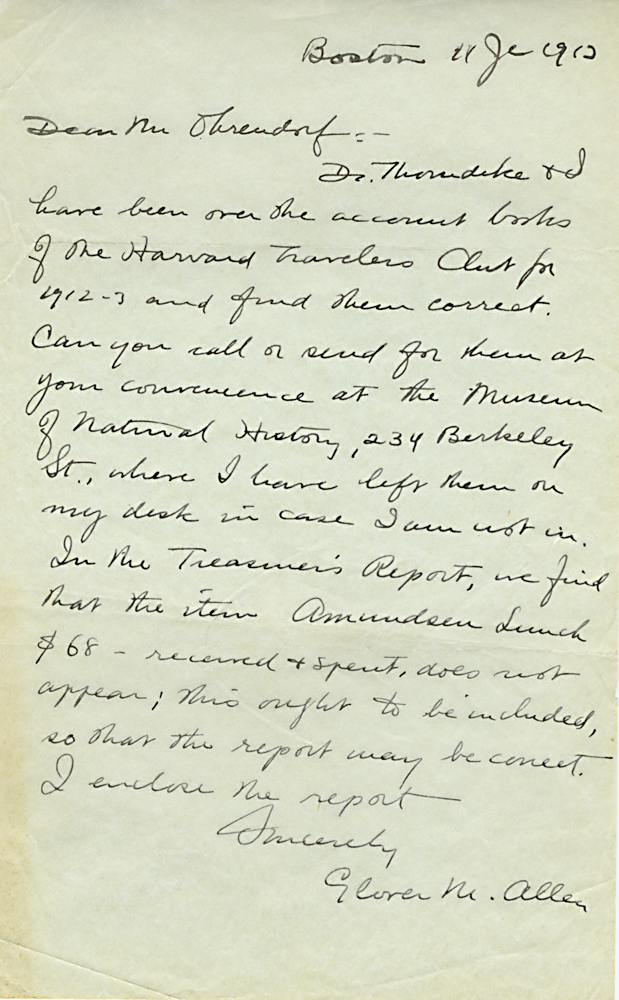 Boston 11 Je 1913
Dear Mr Ohrendorf:-
Dr. Thorndike & I
have been over the account books
of the Harvard Travelers Club for
1912-3 and find them correct.
Can you call or send for them at
your convenience at the Museum
of Natural History, 234 Berkeley
St., where I have left them on
my desk in case I am not in.
In the Treasurer's Report, we find
that the item Amundsen Lunch
$68 - received & spent, does not
appear; this ought to be included,
so that the report may be correct.
I enclose the report
Sincerely
Glover M. Allen